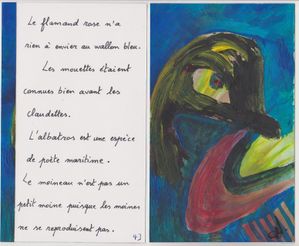 Le flamand rose n'a
rien à envier au wallon bleu.
Les mouettes étaient
connues bien avant les
claudettes.
L'albatros est une espèce
de poète maritime.
Le moineau n'est pas un
petit moine puisque les moines
ne se reproduisent pas.